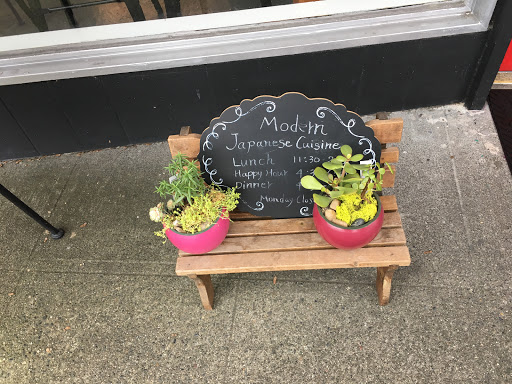 Modern
Japanese Cuisine
Lunch 11:30
Happy Hour 4
Dinner
Monday